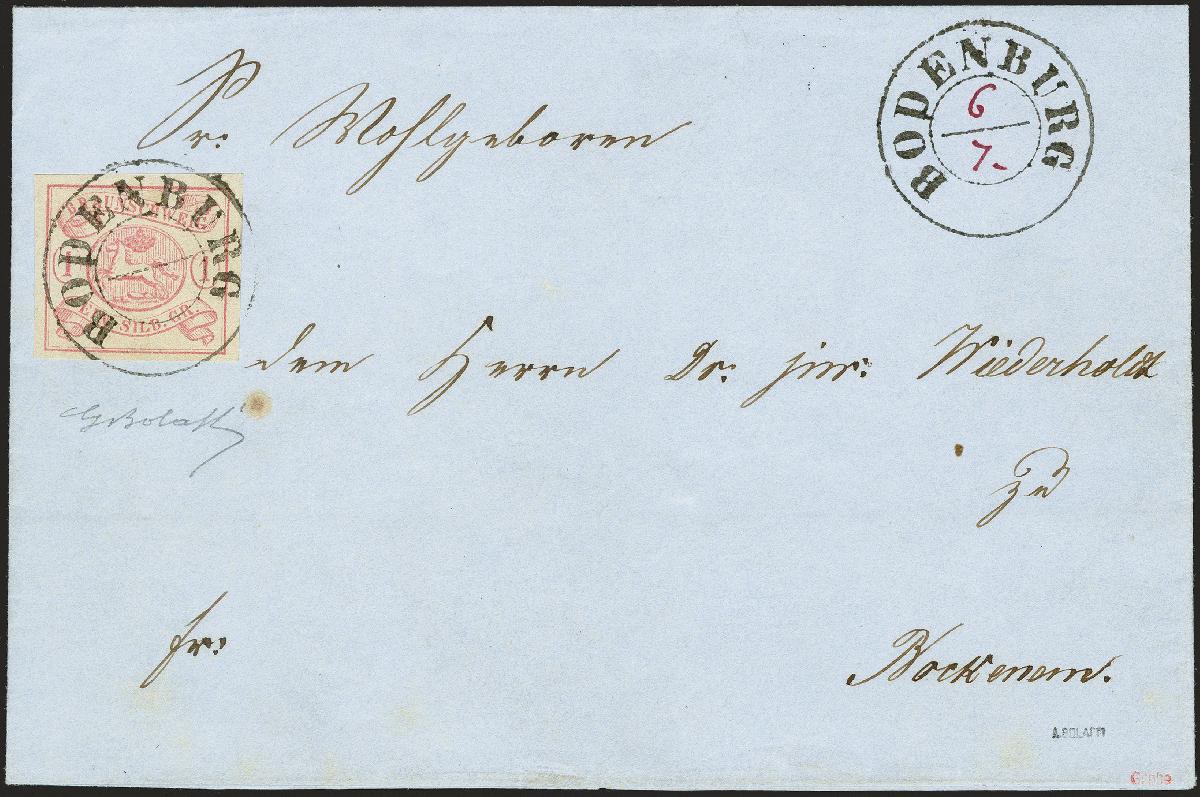 BODENBURG
6
7.
Sr: Wohlgeboren
BRAUNSCHWEIG
1 1
EIN SILB. GR.
BODENBURG
dem Herrn Dr: jur: Wiederholdt
zu
fr:
Bockenem.
A. BOLAFFI